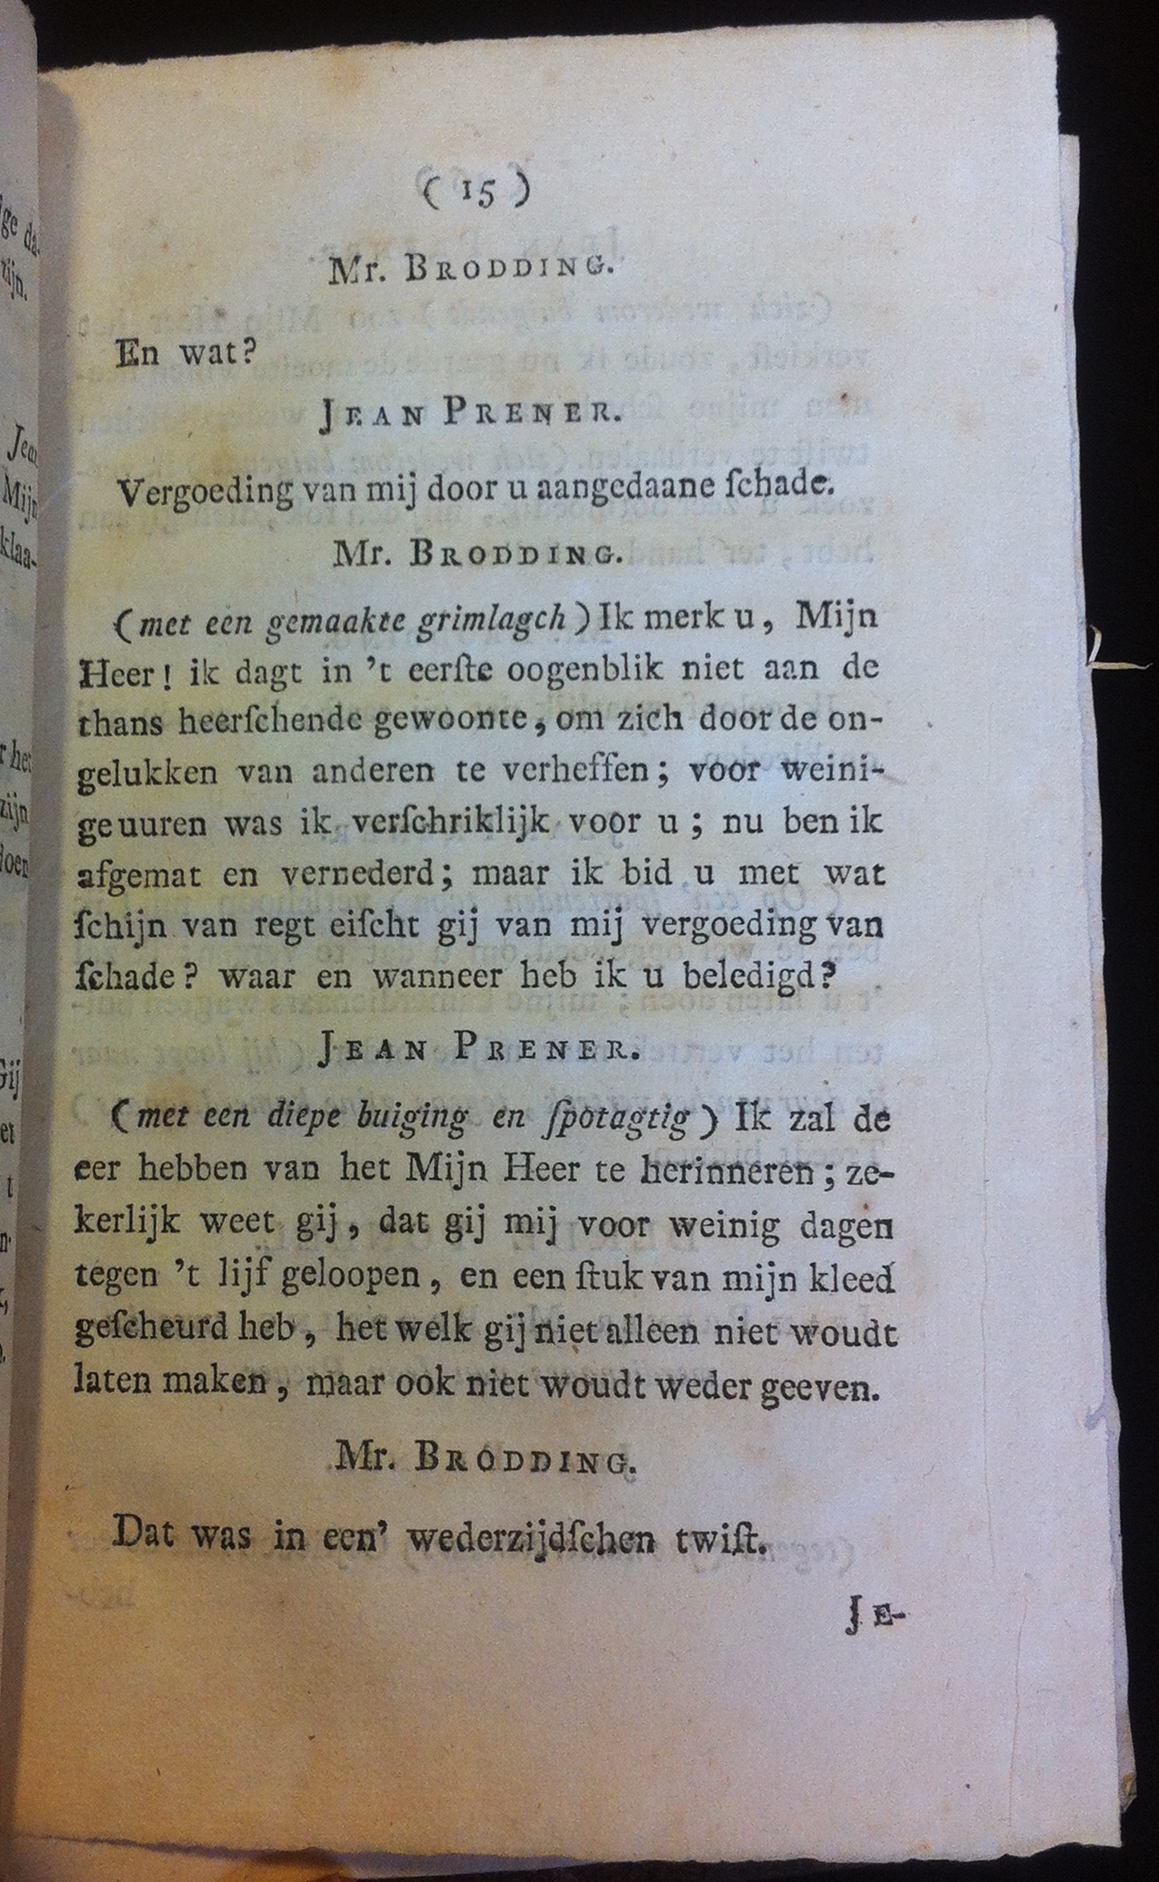 ( 15 )
Mr. BRODDING.
En wat?
JEAN PRENER.
Vergoeding van mij door u aangedaane ſchade.
Mr. BRODDING.
(met een gemaakte grimlagch) Ik merk u, Mijn
Heer! ik dagt in 't eerſte oogenblik niet aan de
thans heerſchende gewoonte, om zich door de on-
gelukken van anderen te verheffen; voor weini-
ge uuren was ik verſchriklijk voor u; nu ben ik
afgemat en vernederd; maar ik bid u met wat
ſchijn van regt eiſcht gij van mij vergoeding van
ſchade? waar en wanneer heb ik u beledigd?
JEAN PRENER.
(met een diepe buiging en ſpotagtig) Ik zal de
eer hebben van het Mijn Heer te herinneren; ze-
kerlijk weet gij, dat gij mij voor weinig dagen
tegen 't lijf geloopen, en een ſtuk van mijn kleed
geſcheurd heb, het welk gij niet alleen niet woudt
laten maken, maar ook niet woudt weder geeven.
Mr. BRODDING.
Dat was in een' wederzijdſchen twiſt.
JE-